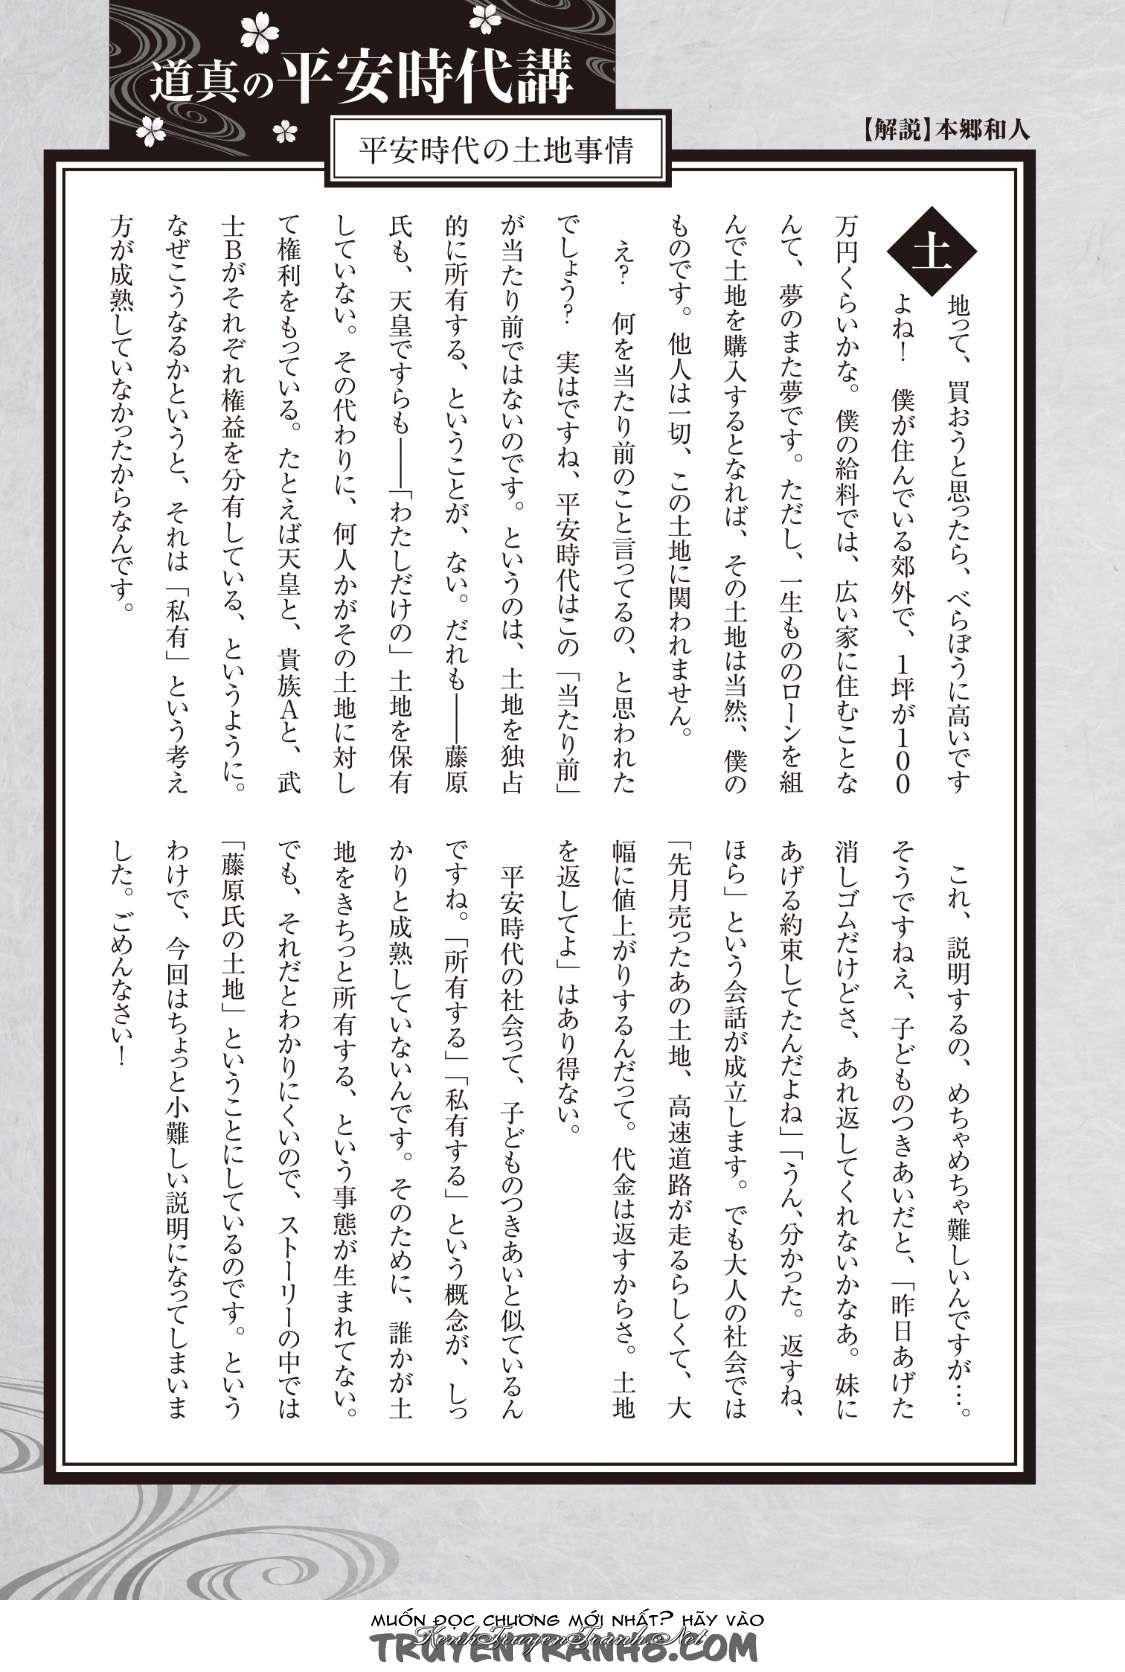 道真の平安時代講
平安時代の土地事情
【解説】本郷和人
土地って、買おうと思ったら、べらぼうに高いです
よね！　僕が住んでいる郊外で、１坪が１００
万円くらいかな。僕の給料では、広い家に住むことな
んて、夢のまた夢です。ただし、一生もののローンを組
んで土地を購入するとなれば、その土地は当然、僕の
ものです。他人は一切、この土地に関われません。
え？　何を当たり前のこと言ってるの、と思われた
でしょう？　実はですね、平安時代はこの「当たり前」
が当たり前ではないのです。というのは、土地を独占
的に所有する、ということが、ない。だれも――藤原
氏も、天皇ですらも――「わたしだけの」土地を保有
していない。その代わりに、何人かがその土地に対し
て権利をもっている。たとえば天皇と、貴族Ａと、武
士Ｂがそれぞれ権益を分有している、というように。
なぜこうなるかというと、それは「私有」という考え
方が成熟していなかったからなんです。
これ、説明するの、めちゃめちゃ難しいんですが…。
そうですねえ、子どものつきあいだと、「昨日あげた
消しゴムだけどさ、あれ返してくれないかなあ。妹に
あげる約束してたんだよね」「うん、分かった。返すね、
ほら」という会話が成立します。でも大人の社会では
「先月売ったあの土地、高速道路が走るらしくて、大
幅に値上がりするんだって。代金は返すからさ。土地
を返してよ」はあり得ない。
平安時代の社会って、子どものつきあいと似ているん
ですね。「所有する」「私有する」という概念が、しっ
かりと成熟していないんです。そのために、誰かが土
地をきちっと所有する、という事態が生まれてない。
でも、それだとわかりにくいので、ストーリーの中では
「藤原氏の土地」ということにしているのです。という
わけで、今回はちょっと小難しい説明になってしまいま
した。ごめんなさい！
MUỐN ĐỌC CHƯƠNG MỚI NHẤT? HÃY VÀO
KenhTruyenTranh.Net
TRUYENTRANH8.COM